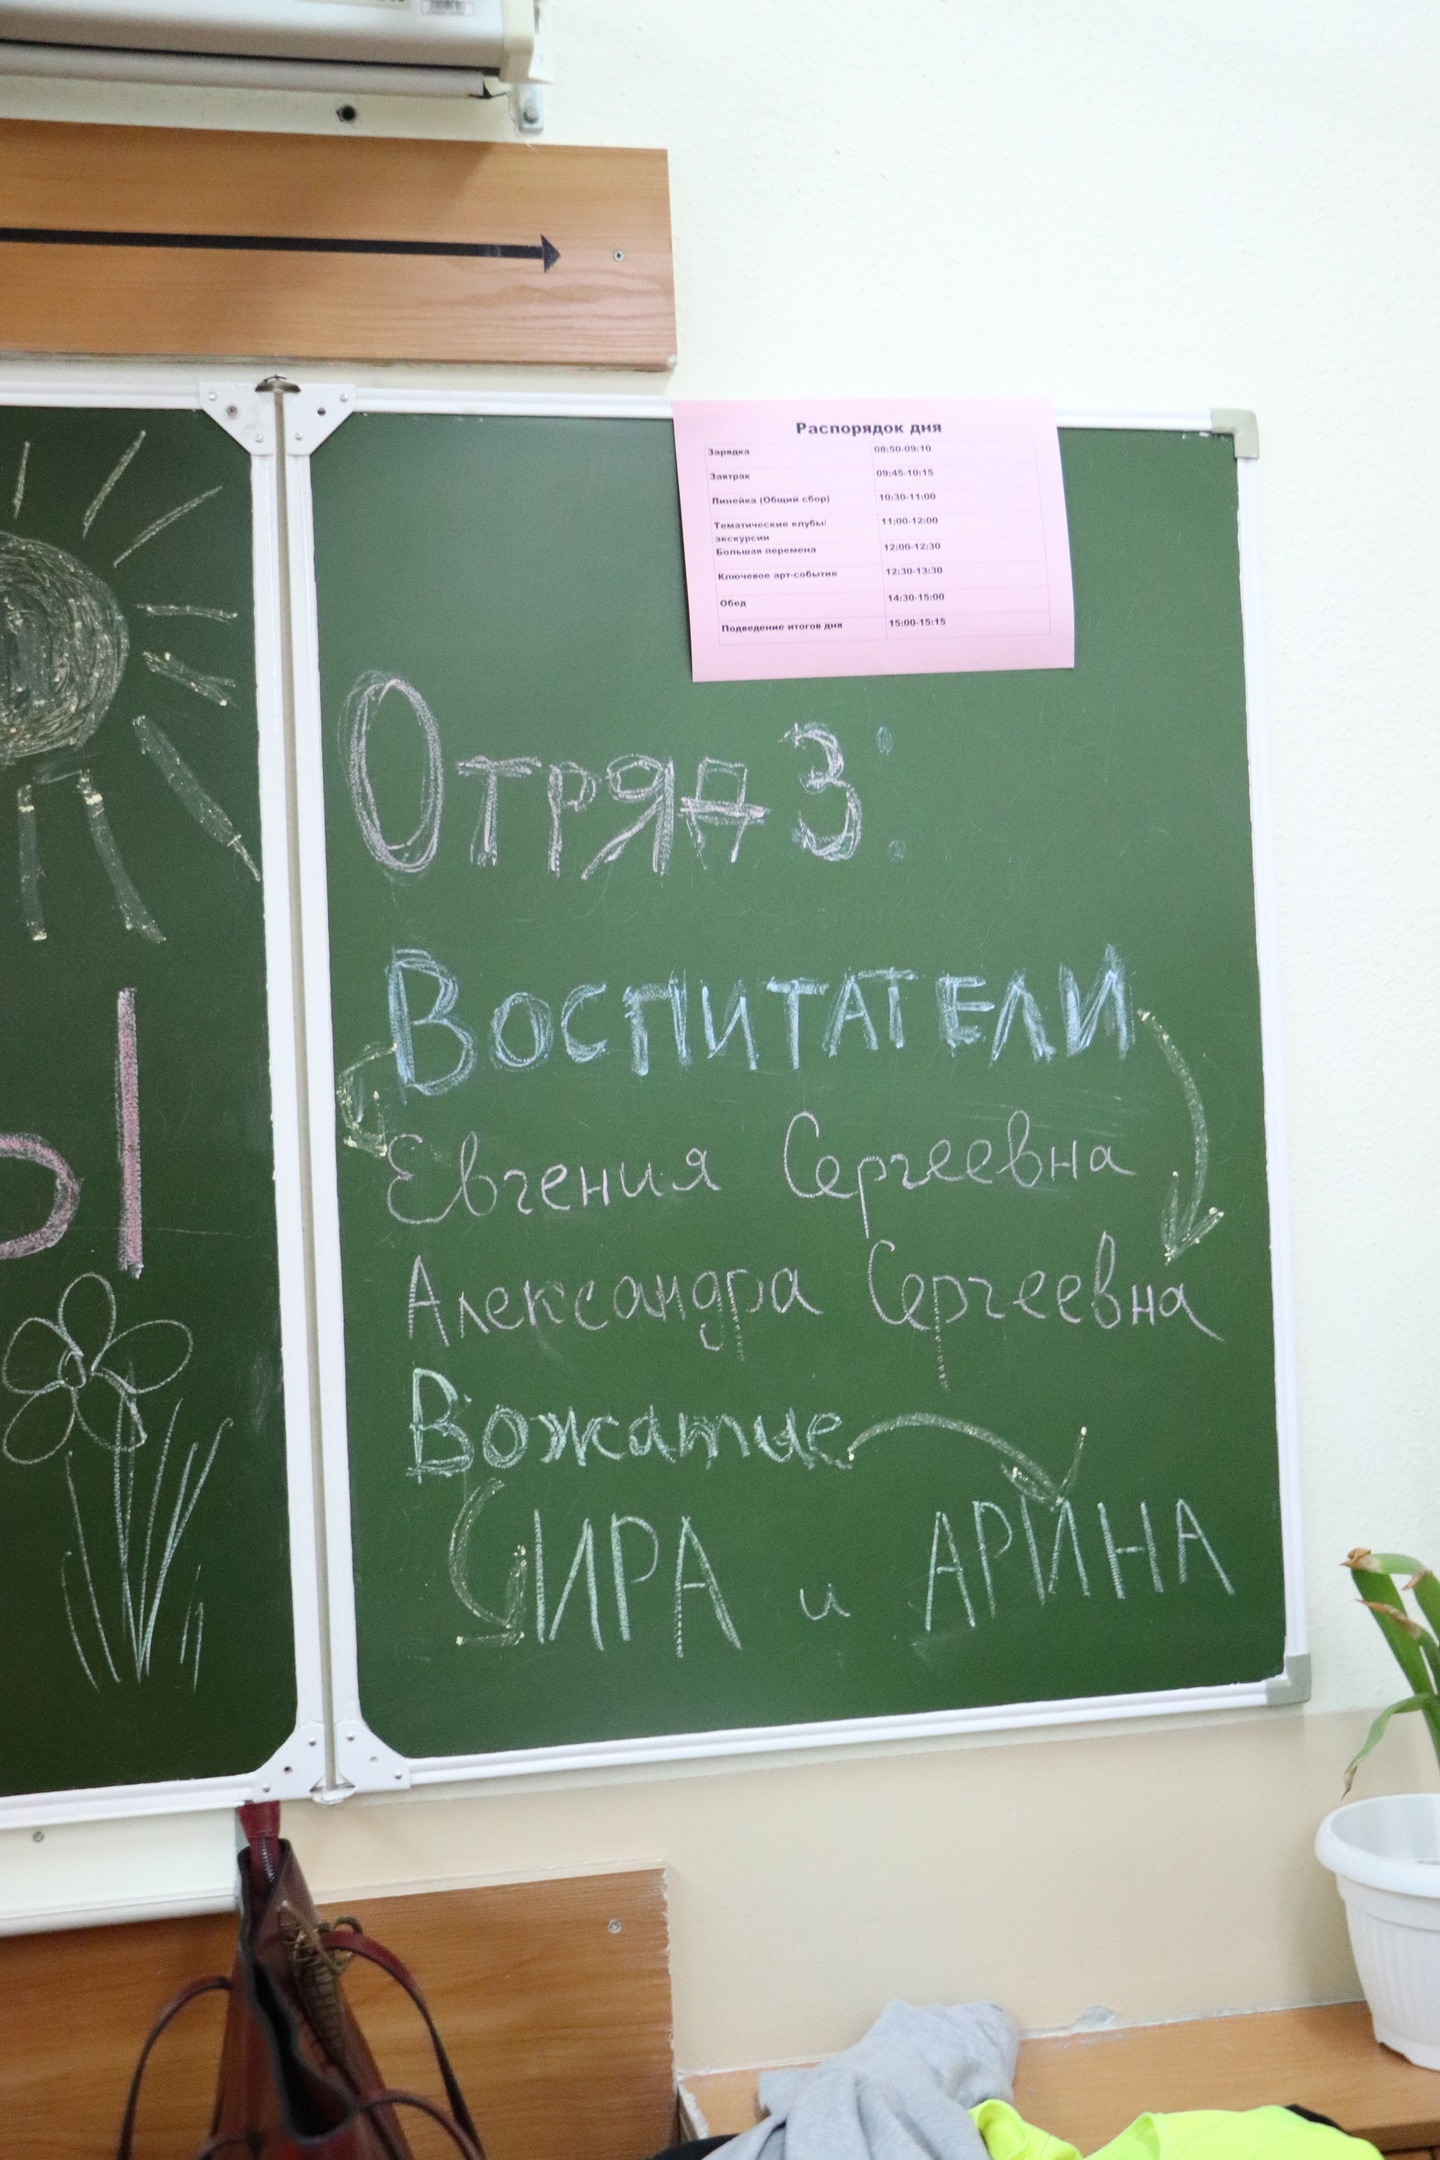 Распорядок дня
Зарядка 08:50-09:10
Завтрак 09:45-10:15
Линейка (Общий сбор) 10:30-11:00
Тематические клубы/ 11:00-12:00
экскурсии
Большая перемена 12:00-12:30
Ключевое арт-событие 12:30-13:30
Обед 14:30-15:00
Подведение итогов дня 15:00-15:15
Отряд 3:
ВОСПИТАТЕЛИ
Евгения Сергеевна
Александра Сергеевна
Вожатые
ИРА и АРИНА